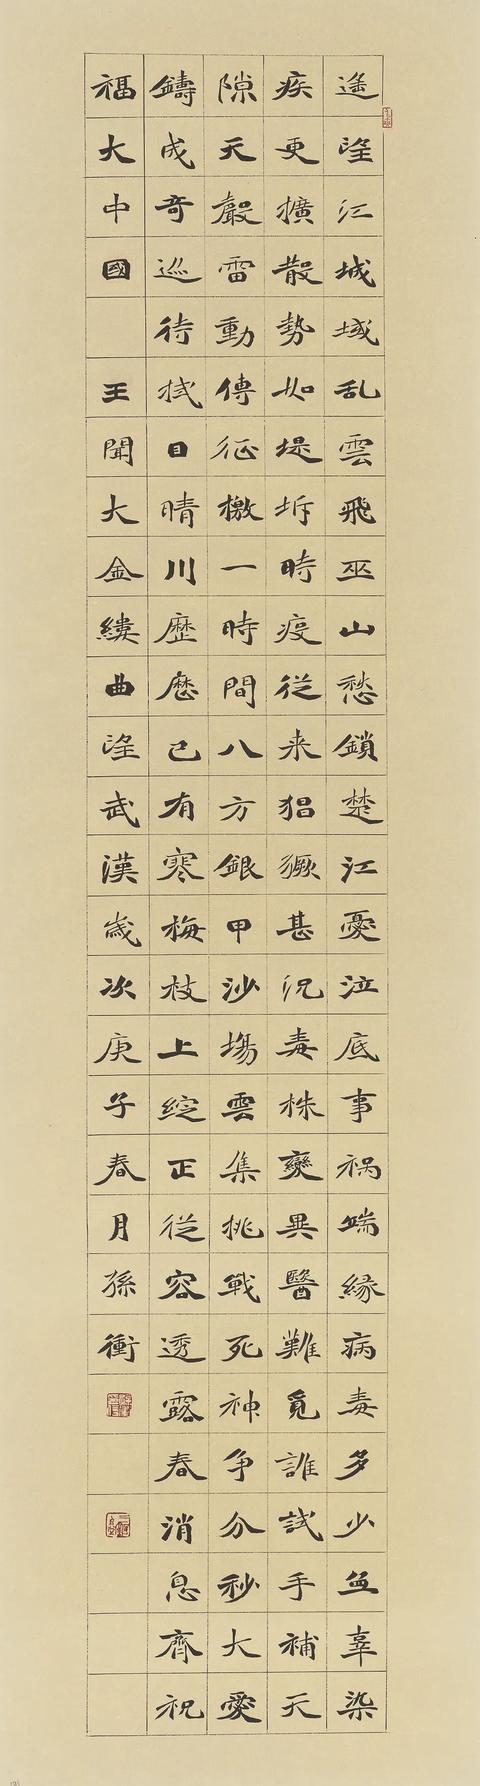 遙望江城域乱雲飛巫山愁鎖楚江憂泣底事祸端緣病毒多少無辜染
疾更擴散勢如堤坼時疫從来猖獗甚況毒株變異醫難覓誰試手補天
隙天聲雷動傳征檄一時間八方銀甲沙塲雲集挑戰死神争分秒大愛
鑄成奇巡待拭目晴川歷歷已有寒梅枝上綻正從容透露春消息齊祝
福大中國 王聞大金縷曲望武漢歲次庚子春月孫衝